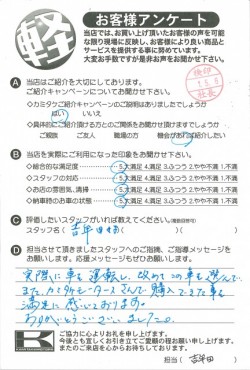 軽
お客様アンケート
当店では、お買い上げ頂いたお客様の声を可能
な限り現場に反映し、お客様により良い商品と
サービスを提供する事に努めています。
大変お手数ですが是非お声をお聞かせ下さい。
A 当店はご紹介を大切にしております。
ご紹介キャンペーンについてお聞かせ下さい。
◇カミタケご紹介キャンペーンのご説明はありましたでしょうか
はい いいえ
◇具体的にご紹介頂ける方とのご関係をお聞かせ頂けますでしょうか
ご親族 ご友人 職場の方 機会があれば紹介したい
B 当店を実際にご利用になった印象をお聞かせ下さい。
◇総合的な満足度 5.大満足 4.満足 3.ふつう 2.やや不満 1.不満
◇スタッフの対応 5.大満足 4.満足 3.ふつう 2.やや不満 1.不満
◇お店の雰囲気、清掃 5.大満足 4.満足 3.ふつう 2.やや不満 1.不満
◇納車時のお車の状態 5.大満足 4.満足 3.ふつう 2.やや不満 1.不満
C 評価したいスタッフがいれば教えてください。
スタッフ名( 吉年田様 )
D 担当させて頂きましたスタッフへのご指摘、ご指導、応援
メッセージをお願いします。
実際に車を運転し、改めてこの車を選んで、
またカミタケモータースさんで購入できた事を
満足に感じております。
ありがとうございました。
ご協力に心よりお礼を申し上げます。
今後とも宜しくお引き立てご愛顧の程お願い申し上げます。
またのご来店を心からお待ちしております。
担当( 吉年田 )